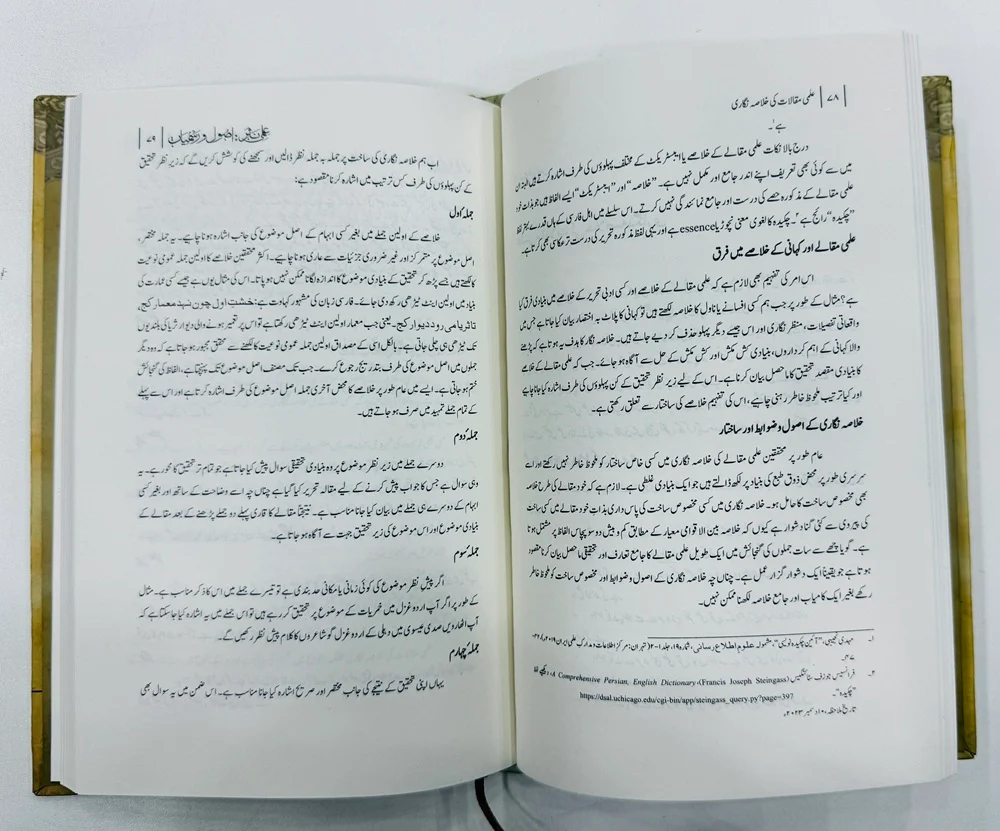 ۷۸ | علمی مقالات کی خلاصہ نگاری
ہے۱۔
درج بالا نکات علمی مقالے کے خلاصے یا ایبسٹریکٹ کے مختلف پہلوؤں کی طرف اشارہ کرتے ہیں البتہ ان
میں سے کوئی بھی تعریف اپنے اندر جامع اور مکمل نہیں ہے۔ ”خلاصہ“ اور ”ایبسٹریکٹ“ ایسے الفاظ ہیں جو بذات خود
علمی مقالے کے مذکورہ حصے کی درست اور جامع نمائندگی نہیں کرتے۔ اس سلسلے میں اہل فارسی کے ہاں قدرے بہتر لفظ
”چکیدہ“ رائج ہے۲۔ چکیدہ کا لغوی معنی نچوڑ یا essence ہے اور یہی لفظ مذکورہ تحریر کی درست تر عکاسی بھی کرتا ہے۔
علمی مقالے اور کہانی کے خلاصے میں فرق
اس امر کی تفہیم بھی لازم ہے کہ علمی مقالے کے خلاصے اور کسی ادبی تحریر کے خلاصے میں بنیادی فرق کیا
ہے؟ مثال کے طور پر جب ہم کسی افسانے یا ناول کا خلاصہ لکھتے ہیں تو کہانی کا پلاٹ بہ اختصار بیان کیا جاتا ہے جس میں
واقعاتی تفصیلات، منظر نگاری اور اس جیسے دیگر پہلو حذف کر دیے جاتے ہیں۔ خلاصہ نگار کا ہدف یہ ہوتا ہے کہ پڑھنے
والا کہانی کے اہم کرداروں، بنیادی کش مکش اور کش مکش کے حل سے آگاہ ہو جائے۔ جب کہ علمی مقالے کے خلاصے
کا بنیادی مقصد تحقیق کا ماحصل بیان کرنا ہے۔ اس کے لیے زیر نظر تحقیق کے کن پہلوؤں کی طرف اشارہ کیا جانا چاہیے
اور کیا ترتیب ملحوظ خاطر رہنی چاہیے، اس کی تفہیم خلاصے کی ساختار سے تعلق رکھتی ہے۔
خلاصہ نگاری کے اصول و ضوابط اور ساختار
عام طور پر محققین علمی مقالے کی خلاصہ نگاری میں کسی خاص ساختار کو ملحوظ خاطر نہیں رکھتے اور اسے
سرسری طور پر محض ذوق طبع کی بنیاد پر لکھ ڈالتے ہیں جو ایک بنیادی غلطی ہے۔ لازم ہے کہ خود مقالے کی طرح خلاصہ
بھی مخصوص ساخت کا حامل ہو۔ خلاصہ نگاری میں کسی مخصوص ساخت کی پاس داری بذات خود مقالے میں کسی ساخت
کی پیروی سے کئی گنا دشوار ہے کیوں کہ خلاصہ بین الاقوامی معیار کے مطابق کم و بیش دو سو پچاس الفاظ پر مشتمل ہوتا
ہے۔ گویا چھے سے سات جملوں کی گنجائش میں ایک طویل علمی مقالے کا جامع تعارف اور تحقیقی ماحصل بیان کرنا مقصود
ہوتا ہے جو یقیناً ایک دشوار گزار عمل ہے۔ چناں چہ خلاصہ نگاری کے اصول و ضوابط اور مخصوص ساخت کو ملحوظ خاطر
رکھے بغیر ایک کامیاب اور جامع خلاصہ لکھنا ممکن نہیں۔
۱۔ مہدی نجیبی، ”آئین چکیدہ نویسی“ مشمولہ علوم اطلاع رسانی، شمارہ ۱۹، جلد ۱-۲ (تہران: مرکز اطلاعات و مدارک علمی ایران ۲۰۱۹ء)، ۴۲-
۴۷۔
۲۔ فرانسیس جوزف سٹائنگیس (Francis Joseph Steingass)، A Comprehensive Persian, English Dictionary، دیکھیے لفظ
”چکیدہ“۔ https://dsal.uchicago.edu/cgi-bin/app/steingass_query.py?page=397
تاریخ ملاحظہ، ۱۰ دسمبر ۲۰۲۳ء۔
علمی نثر: اصول و رسمیات | ۷۹
اب ہم خلاصہ نگاری کی ساخت پر جملہ بہ جملہ نظر ڈالیں اور سمجھنے کی کوشش کریں گے کہ زیر نظر تحقیق
کے کن پہلوؤں کی طرف کس ترتیب میں اشارہ کرنا مقصود ہے:
جملہ اول
خلاصے کے اولین جملے میں بغیر کسی ابہام کے اصل موضوع کی جانب اشارہ ہونا چاہیے۔ یہ جملہ مختصر،
اصل موضوع پر متمرکز اور غیر ضروری جزئیات سے عاری ہونا چاہیے۔ اکثر محققین خلاصے کا اولین جملہ عمومی نوعیت
کا لکھتے ہیں جسے پڑھ کر تحقیق کے بنیادی موضوع کا اندازہ لگانا ممکن نہیں ہو پاتا۔ اس کی مثال یوں ہے جیسے کسی عمارت کی
بنیاد میں اولین اینٹ ٹیڑھی رکھ دی جائے۔ فارسی زبان کی مشہور کہاوت ہے: خشتِ اول چون نہد معمار کج،
تا ثریا می رود دیوار کج۔ یعنی جب معمار اولین اینٹ ٹیڑھی رکھتا ہے تو اس پر تعمیر ہونے والی دیوار ثریا کی بلندیوں
تک ٹیڑھی ہی چلی جاتی ہے۔ بالکل اسی کے مصداق اولین جملہ عمومی نوعیت کا لکھنے سے محقق مجبور ہو جاتا ہے کہ وہ دیگر
جملوں میں اصل موضوع کی طرف بتدریج رجوع کرے۔ جب تک مصنف اصل موضوع تک پہنچتا ہے، الفاظ کی گنجائش
ختم ہو جاتی ہے۔ ایسے میں عام طور پر خلاصے کا محض آخری جملہ اصل موضوع کی طرف اشارہ کرتا ہے اور اس سے پہلے
کے تمام جملے تمہید میں صرف ہو جاتے ہیں۔
جملہ دوم
دوسرے جملے میں زیر نظر موضوع پر وہ بنیادی تحقیقی سوال پیش کیا جاتا ہے جو تمام تر تحقیق کا محور ہے۔ یہ
وہی سوال ہے جس کا جواب پیش کرنے کے لیے مقالہ تحریر کیا گیا ہے چناں چہ اسے وضاحت کے ساتھ اور بغیر کسی
ابہام کے دوسرے ہی جملے میں بیان کیا جانا مناسب ہے۔ نتیجتاً مقالے کا قاری پہلے دو جملے پڑھنے کے بعد مقالے کے
بنیادی موضوع اور اس موضوع کی زیر تحقیق جہت سے آگاہ ہو جاتا ہے۔
جملہ سوم
اگر پیش نظر موضوع کی کوئی زمانی یا مکانی حد بندی ہے تو تیسرے جملے میں اس کا ذکر مناسب ہے۔ مثال
کے طور پر اگر آپ اردو غزل میں خمریات کے موضوع پر تحقیق کر رہے ہیں تو اس جملے میں یہ اشارہ کیا جا سکتا ہے کہ
آپ اٹھارویں صدی عیسوی میں دہلی کے اردو غزل گو شاعروں کا کلام پیش نظر رکھیں گے۔
جملہ چہارم
یہاں اپنی تحقیق کے نتیجے کی جانب مختصر اور صریح اشارہ کیا جانا مناسب ہے۔ اس ضمن میں یہ سوال بھی